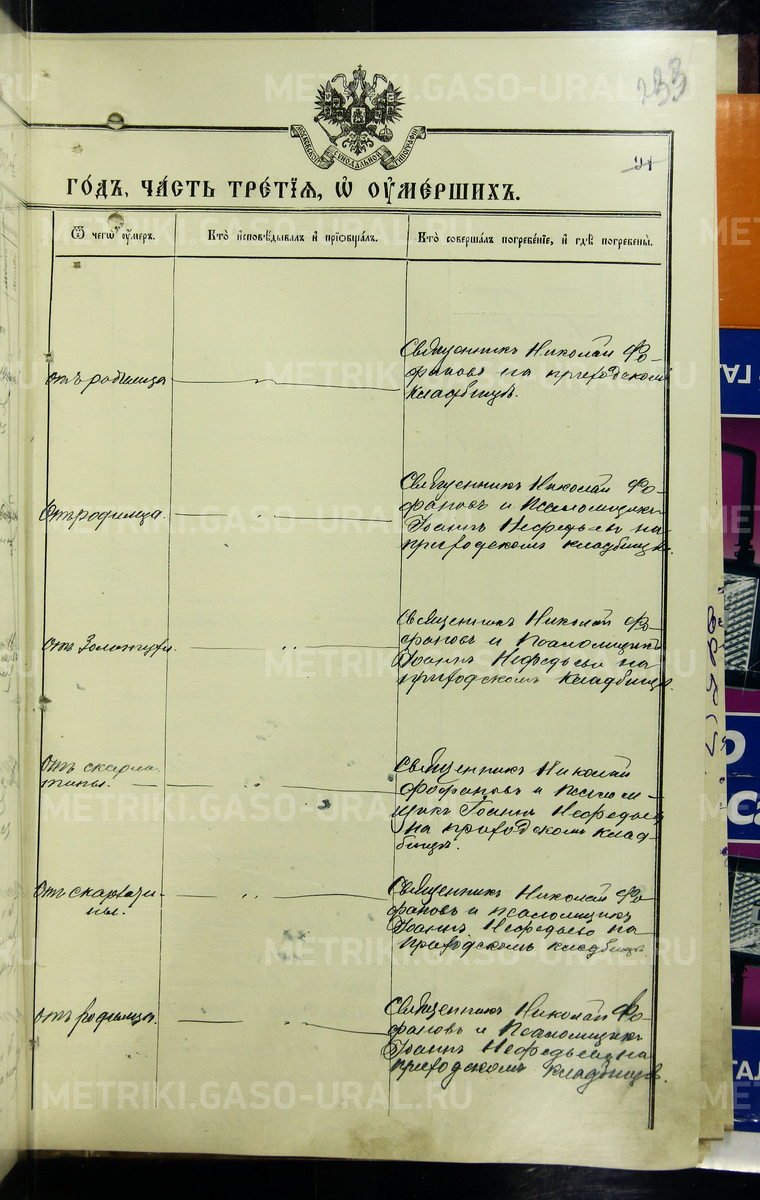 METRIKI.GASO-URAL.RU
233
МОСКОВСКОЙ СѴНОДАЛЬНОЙ ТИПОГРАФІИ
91
ГО́ДЪ, ЧА́СТЬ ТРЕ́ТІѦ, Ѡ҆ ОУ҆МЕ́РШИХЪ.
Ѿ чегѡ̀ оу҆́меръ.
Кто̀ и҆сповѣ́дывалъ и҆ прїѡбща́лъ.
Кто̀ соверша́лъ погребе́нїе, и҆ гдѣ̀ погребены̀.
отъ родимца
Священникъ Николай Фо-
фановъ на приходскомъ
кладбищѣ.
Отъ родимца.
Священникъ Николай Фо-
фановъ и Псаломщикъ
Іоаннъ Нефедьевъ на
приходскомъ кладбищѣ.
METRIKI.GASO-URAL.RU
отъ Золотухи.
Священникъ Николай Фо-
фановъ и Псаломщикъ
Іоаннъ Нефедьевъ на
приходскомъ кладбищѣ.
отъ скарла-
тины.
Священникъ Николай
Фофановъ и Псалом-
щикъ Іоаннъ Нефедьевъ
на приходскомъ клад-
бищѣ.
METRIKI.GASO-URAL.RU
Отъ скарлати-
ны.
Священникъ Николай Фо-
фановъ и псаломщикъ
Іоаннъ Нефедьевъ на
приходскомъ кладбищѣ.
METRIKI.GASO-URAL.RU
отъ родимца.
Священникъ Николай Фо-
фановъ и Псаломщикъ
Іоаннъ Нефедьевъ на
приходскомъ кладбищѣ.
METRIKI.GASO-URAL.RU